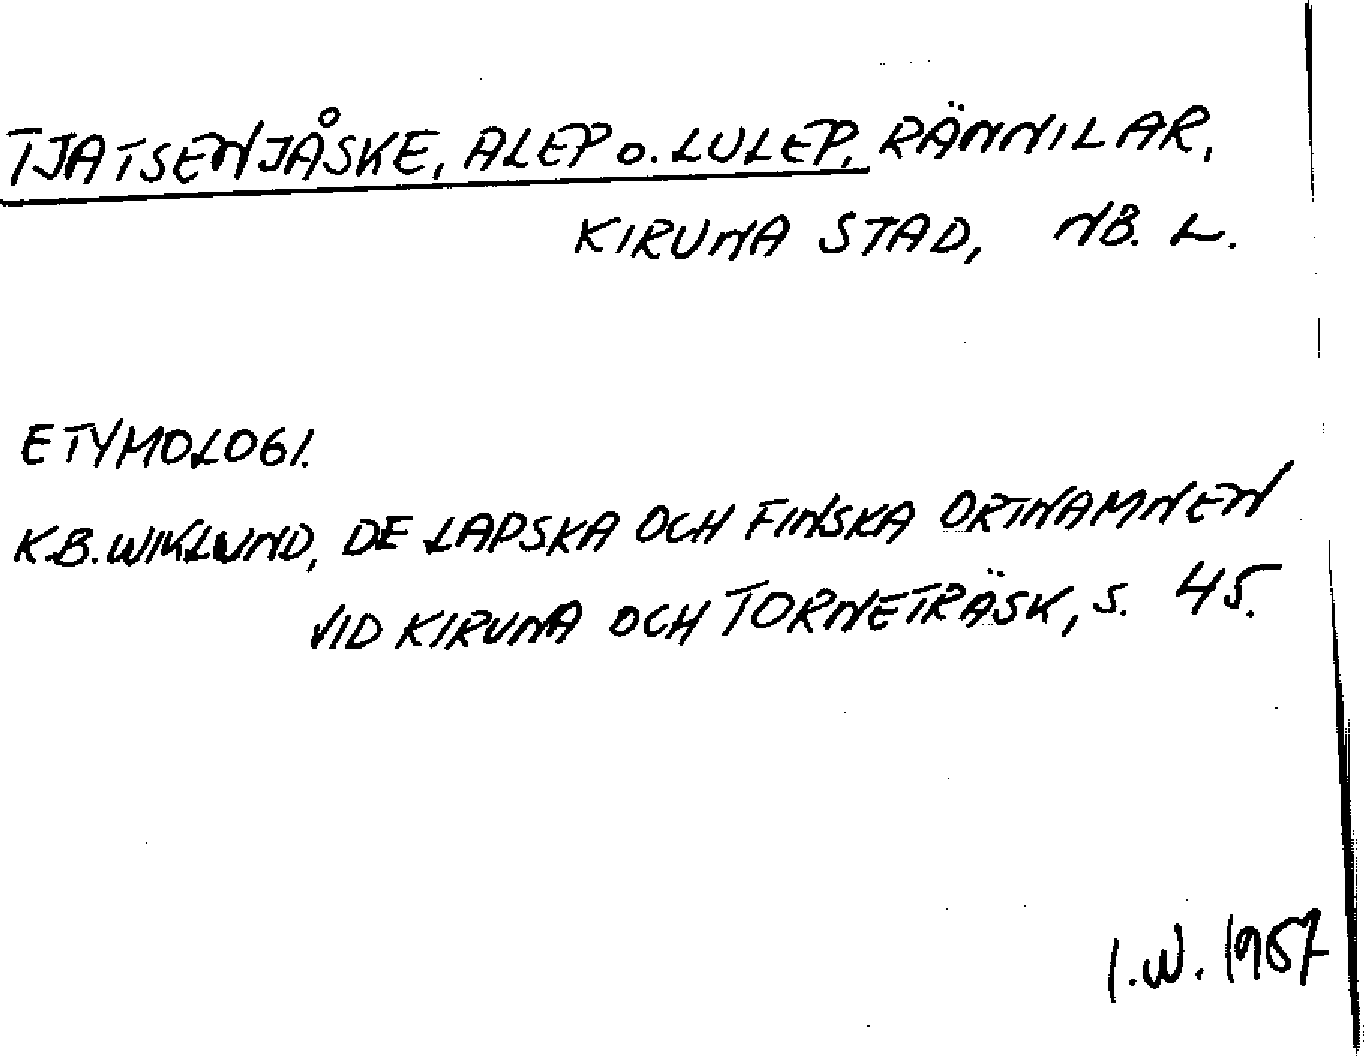 TJATSENJÅSKE, ALEP o. LULEP, RÄNNILAR,
KIRUNA STAD, NB. L.
ETYMOLOGI.
K.B. WIKLUND, DE LAPSKA OCH FINSKA ORTNAMNEN
VID KIRUNA OCH TORNETRÄSK, S. 45.
I.W. 1967